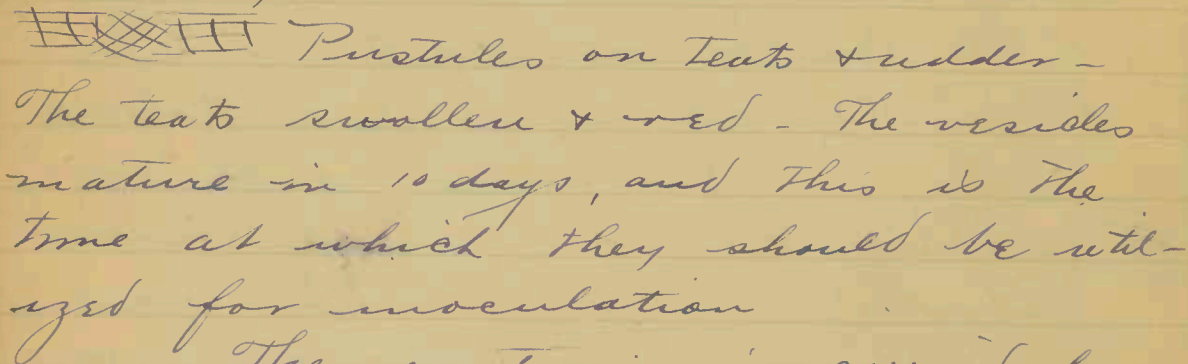 Pustules on Teats & udder -
The teats swollen & red - The vesicles
mature in 10 days, and this is the
time at which they should be util-
ized for inoculation
The